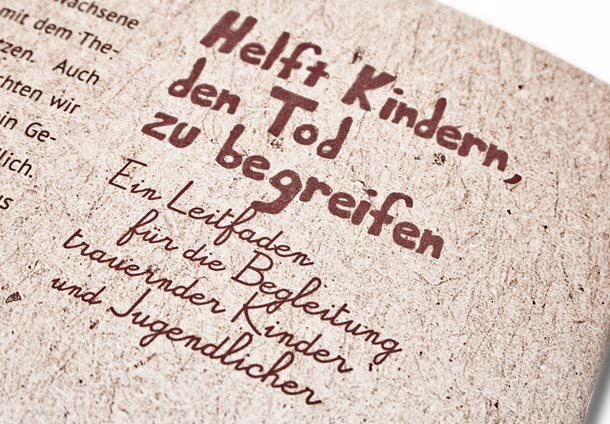 wachsene
mit dem The-
tzen. Auch
chten wir
ein Ge-
lich.
s
Helft Kindern,
den Tod
zu begreifen
Ein Leitfaden
für die Begleitung
trauernder Kinder
und Jugendlicher